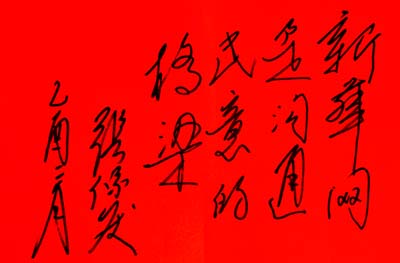 新华网
是沟通
民意的
桥梁
张保发
乙酉二月